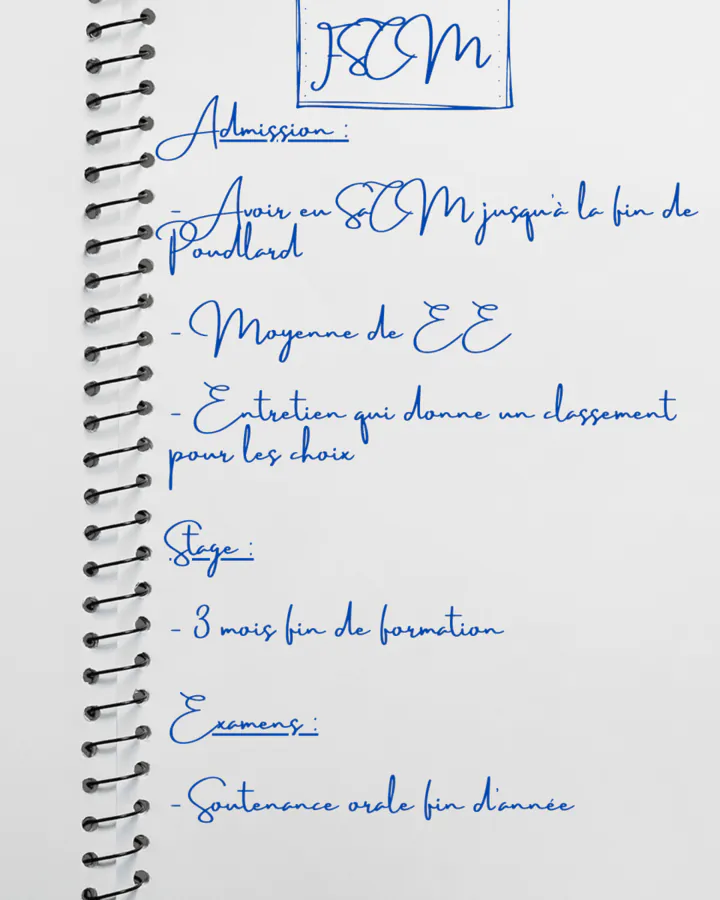 FSCM
Admission :
- Avoir eu SaCM jusqu'à la fin de
Poudlard
- Moyenne de EE
- Entretien qui donne un classement
pour les choix
Stage :
- 3 mois fin de formation
Examens :
- Soutenance orale fin d'année